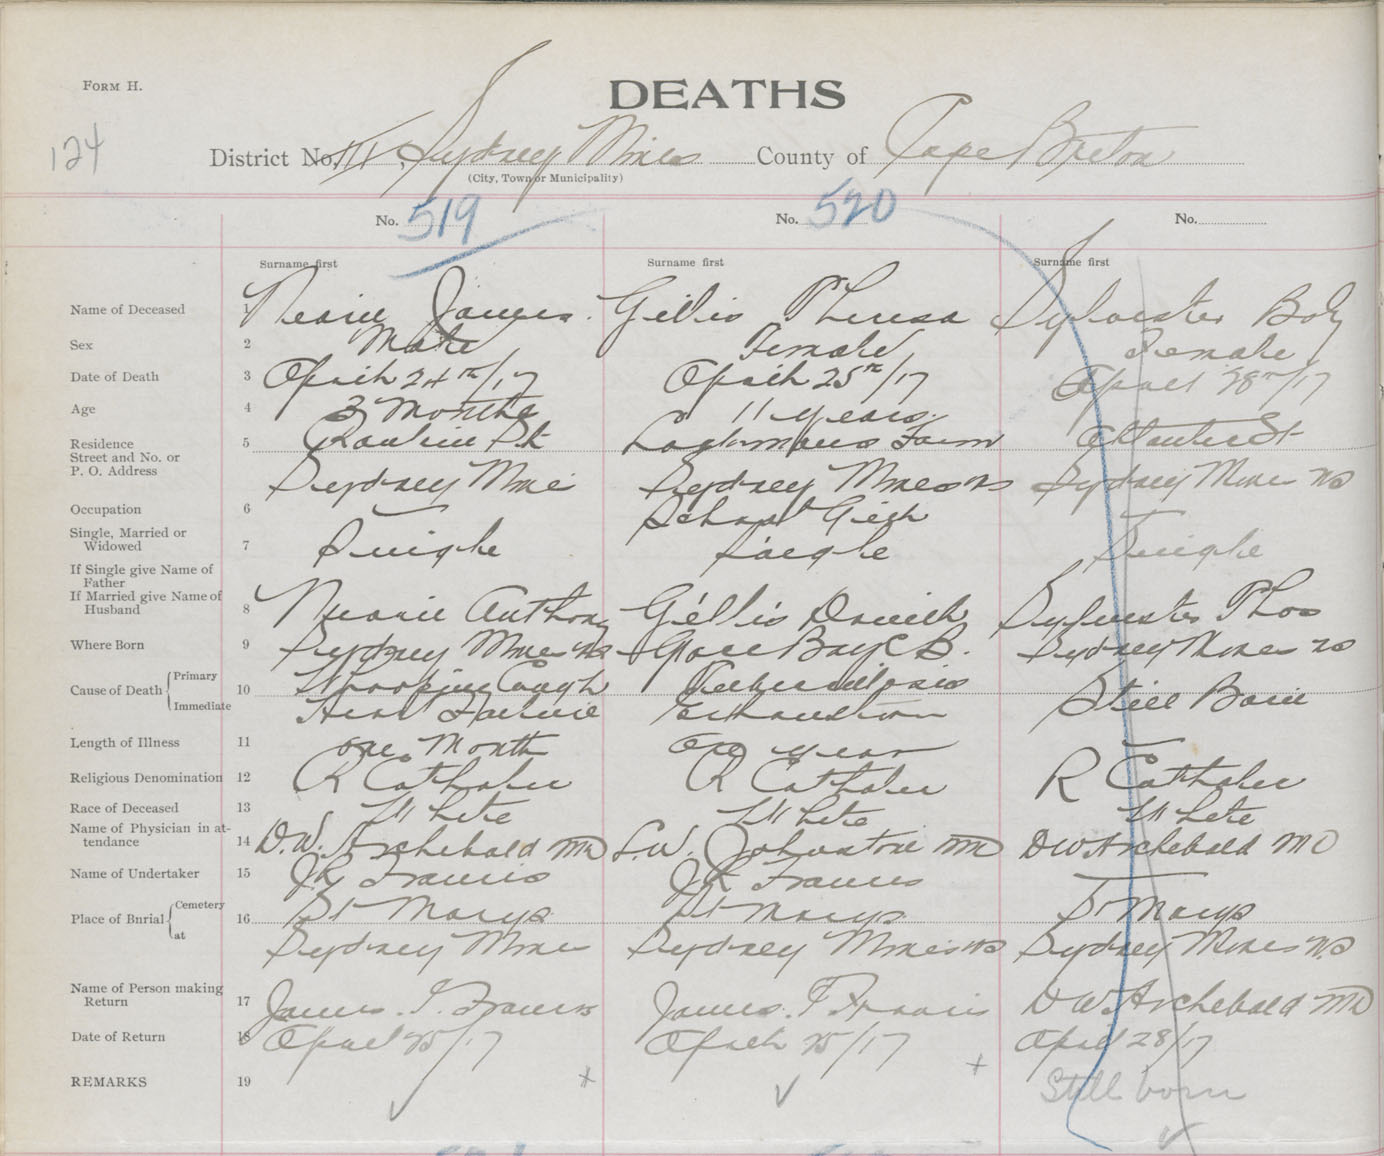 FORM H.
DEATHS
124
District No. III, Sydney Mines County of Cape Breton
(City, Town or Municipality)
No. 519 No. 520 No.
Surname first Surname first Surname first
Name of Deceased 1 James. Gillis Theresa Sylvester Baby
Sex 2 Male Female Female
Date of Death 3 April 24th/17 April 25th/17 April 28th/17
Age 4 3 Months 11 years
Residence
Street and No. or
P. O. Address
5 St Farm St
Sydney Mine Sydney Mines NS Sydney Mines NS
Occupation 6 School Girl
Single, Married or
Widowed
7 Single Single Single
If Single give Name of
Father
If Married give Name of
Husband
8 Anthony Gillis Daniel Sylvester Thos
Where Born 9 Sydney Mines NS Glace Bay C B. Sydney Mines NS
Cause of Death Primary 10 Whooping Cough Tuberculosis
Immediate Heart Failure Exhaustion Still Born
Length of Illness 11 one Month one year
Religious Denomination 12 R Catholic R Catholic R Catholic
Race of Deceased 13 White White White
Name of Physician in at-
tendance
14 D.W. Archebald MD L.W. Johnstone MD DW Archebald MD
Name of Undertaker 15 JR Francis JR Francis
Place of Burial Cemetery 16 St Marys St Marys St Marys
at Sydney Mine Sydney Mines NS Sydney Mines N.S
Name of Person making
Return
17 James. T. Francis James. T Francis DW Archebald MD
Date of Return 18 April 25/17 April 25/17 April 28/17
REMARKS 19 Still born